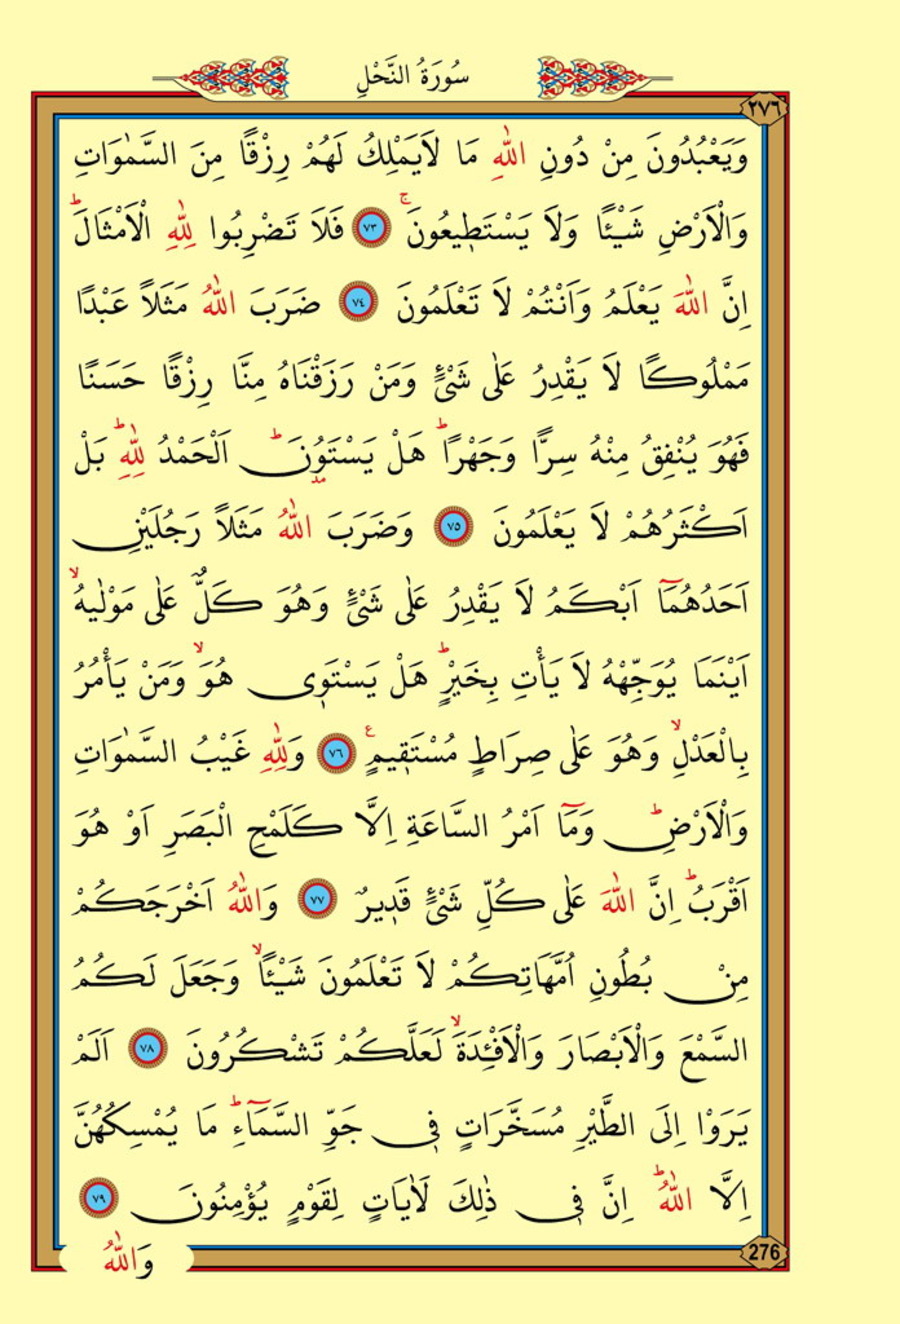 سُورَةُ النَّحْلِ
٢٧٦
وَيَعْبُدُونَ مِنْ دُونِ اللّٰهِ مَا لَايَمْلِكُ لَهُمْ رِزْقًا مِنَ السَّمٰوَاتِ
وَالْاَرْضِ شَيْـًٔا وَلَا يَسْتَطٖيعُونَۚ ٧٣ فَلَا تَضْرِبُوا لِلّٰهِ الْاَمْثَالَؕ
اِنَّ اللّٰهَ يَعْلَمُ وَاَنْتُمْ لَا تَعْلَمُونَ ٧٤ ضَرَبَ اللّٰهُ مَثَلًا عَبْدًا
مَمْلُوكًا لَا يَقْدِرُ عَلٰى شَیْءٍ وَمَنْ رَزَقْنَاهُ مِنَّا رِزْقًا حَسَنًا
فَهُوَ يُنْفِقُ مِنْهُ سِرًّا وَجَهْرًاؕ هَلْ يَسْتَوُ۫نَؕ اَلْحَمْدُ لِلّٰهِؕ بَلْ
اَكْثَرُهُمْ لَا يَعْلَمُونَ ٧٥ وَضَرَبَ اللّٰهُ مَثَلًا رَجُلَيْنِ
اَحَدُهُمَٓا اَبْكَمُ لَا يَقْدِرُ عَلٰى شَیْءٍ وَهُوَ كَلٌّ عَلٰى مَوْلٰيهُۙ
اَيْنَمَا يُوَجِّهْهُ لَا يَأْتِ بِخَيْرٍؕ هَلْ يَسْتَوٖى هُوَۙ وَمَنْ يَأْمُرُ
بِالْعَدْلِۙ وَهُوَ عَلٰى صِرَاطٍ مُسْتَقٖيمٍࣖ ٧٦ وَلِلّٰهِ غَيْبُ السَّمٰوَاتِ
وَالْاَرْضِؕ وَمَٓا اَمْرُ السَّاعَةِ اِلَّا كَلَمْحِ الْبَصَرِ اَوْ هُوَ
اَقْرَبُؕ اِنَّ اللّٰهَ عَلٰى كُلِّ شَیْءٍ قَدٖيرٌ ٧٧ وَاللّٰهُ اَخْرَجَكُمْ
مِنْ بُطُونِ اُمَّهَاتِكُمْ لَا تَعْلَمُونَ شَيْـًٔاۙ وَجَعَلَ لَكُمُ
السَّمْعَ وَالْاَبْصَارَ وَالْاَفْـِٔدَةَۙ لَعَلَّكُمْ تَشْكُرُونَ ٧٨ اَلَمْ
يَرَوْا اِلَى الطَّيْرِ مُسَخَّرَاتٍ فٖى جَوِّ السَّمَٓاءِؕ مَا يُمْسِكُهُنَّ
اِلَّا اللّٰهُؕ اِنَّ فٖى ذٰلِكَ لَاٰيَاتٍ لِقَوْمٍ يُؤْمِنُونَ ٧٩
276
وَاللّٰهُ